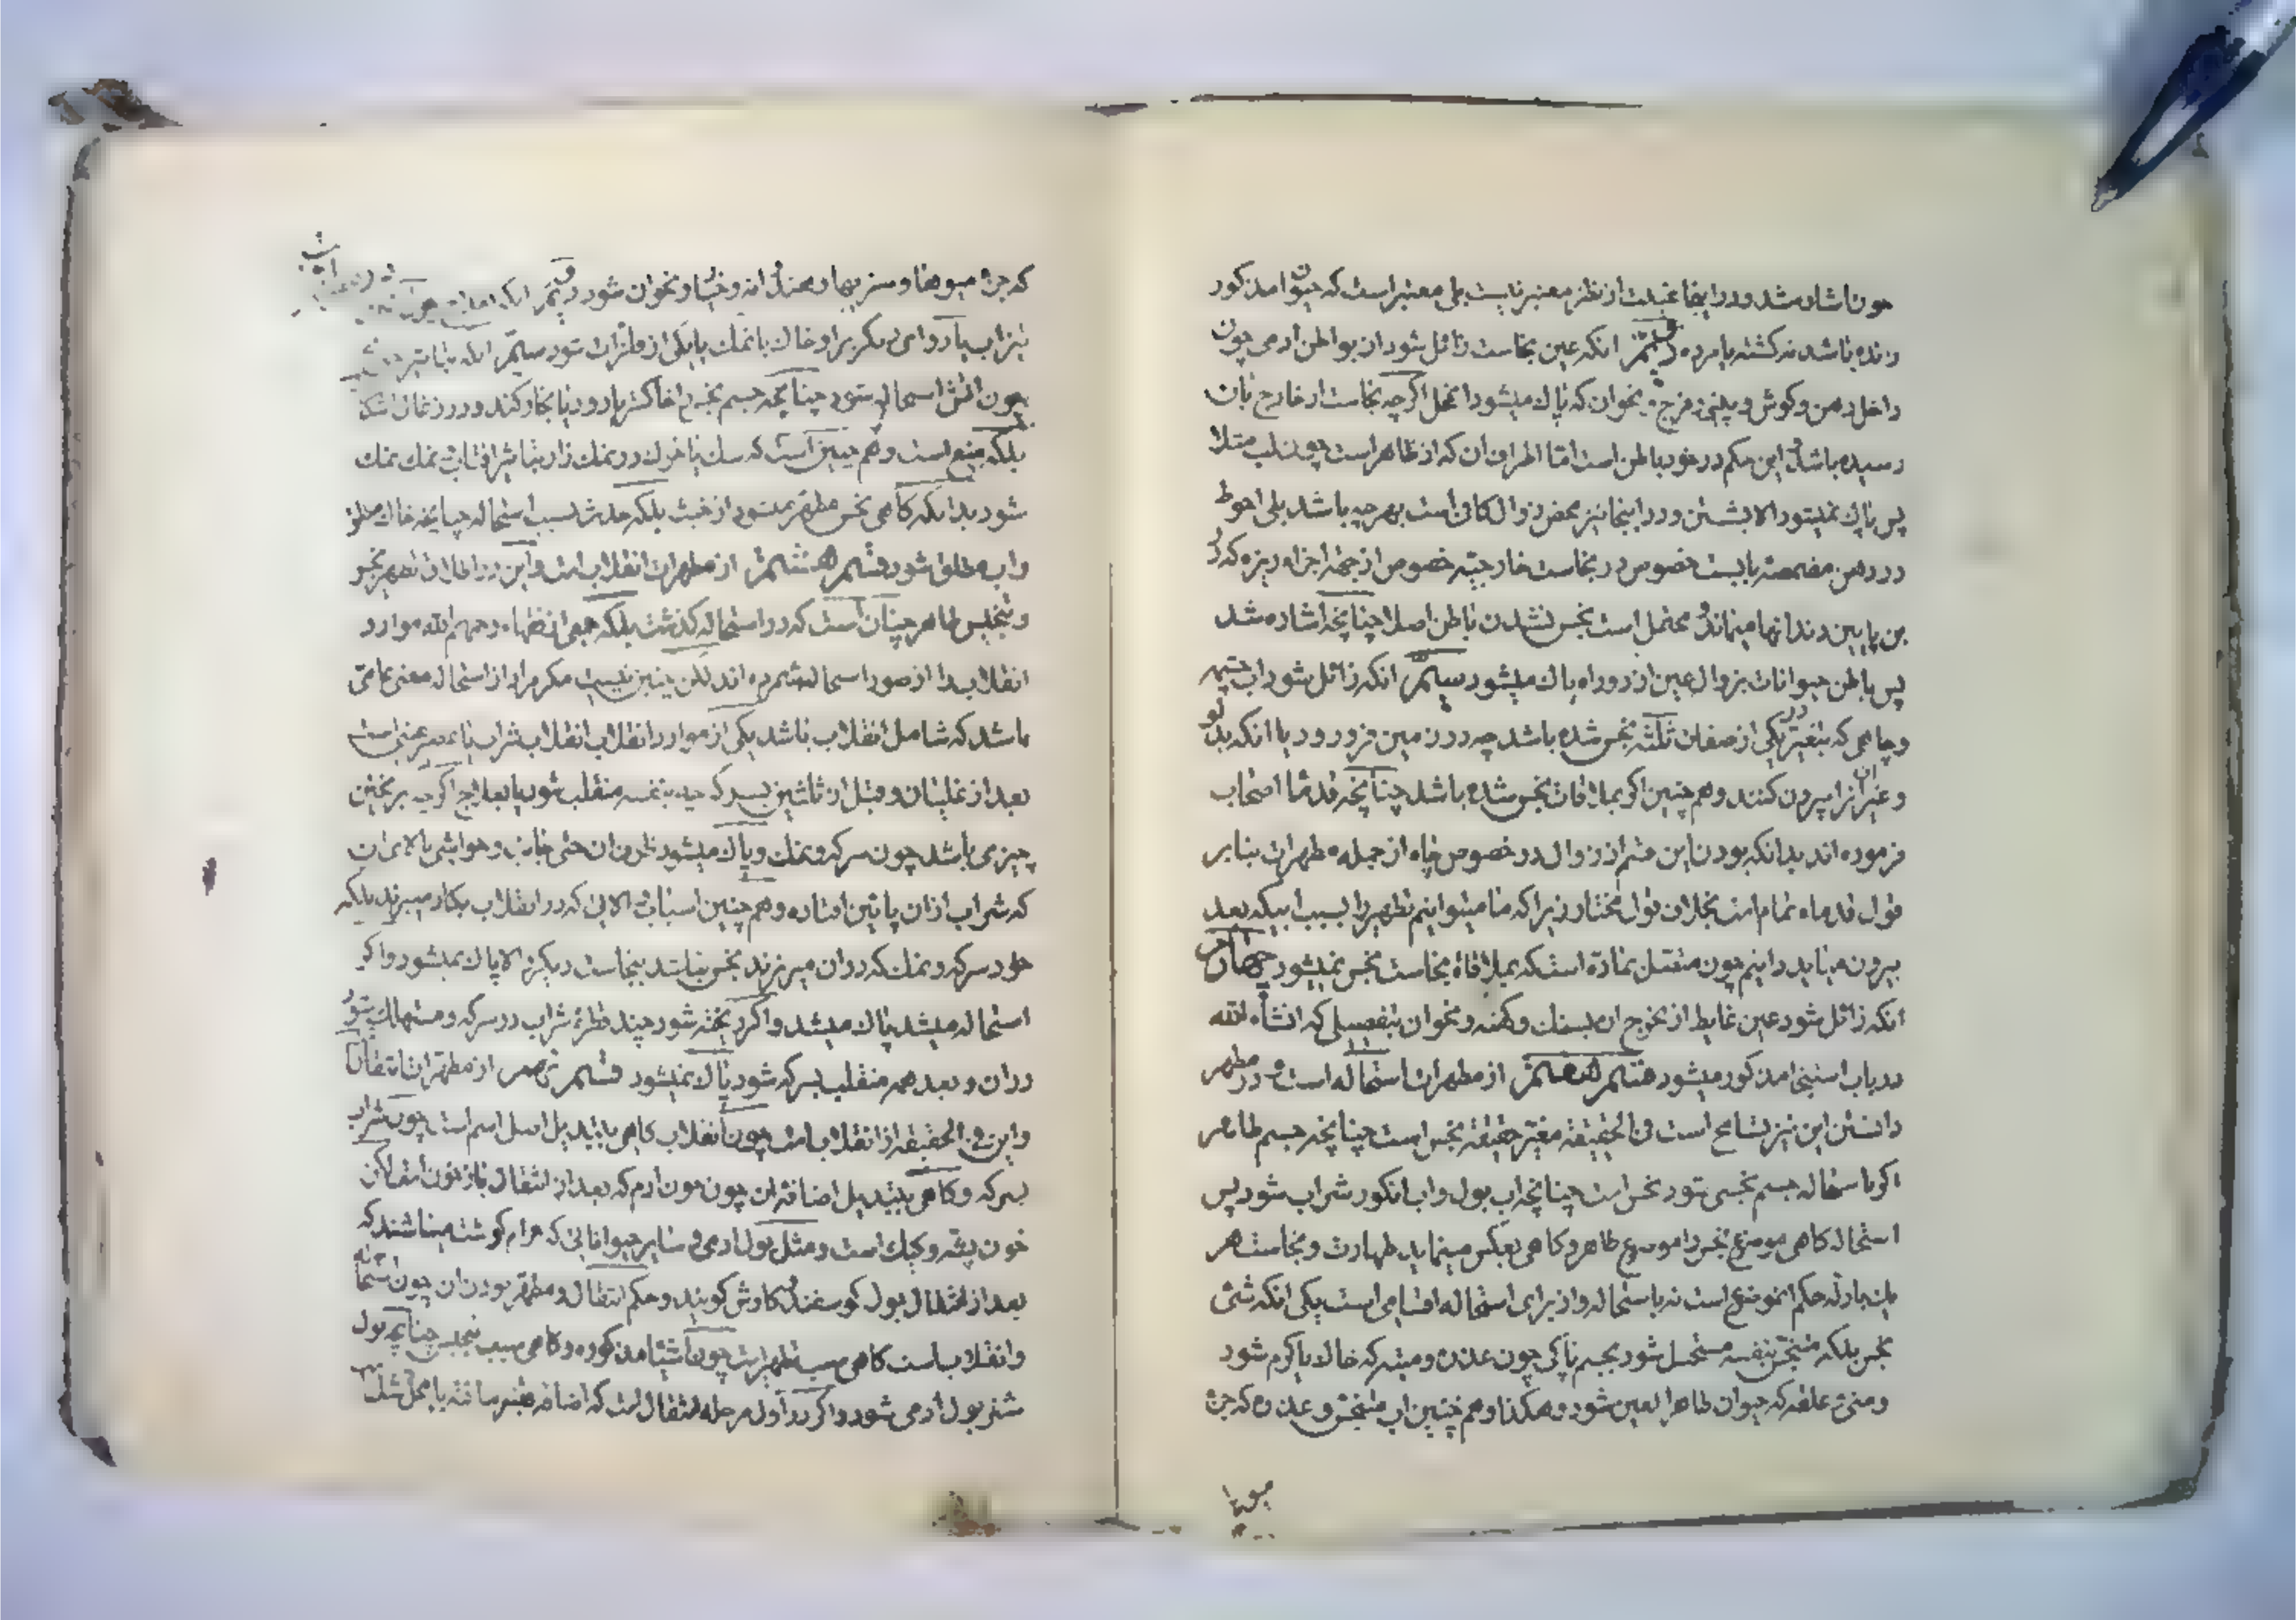 چون اشاره شد و در اینجا غیبت از نظر معتبر نیست بلی معتبر است که حیوان مذکور
زنده باشد نه کشته یا مرده دویم انکه عین نجاست زائل شود از بواطن ادمی چون
داخل دهن و گوش و بینی و فرج و نحو ان که پاک میشود انمحل اگرچه نجاست از خارج بان
رسیده باشد و این حکم در خود باطن است اما اطراف ان که از ظاهر است چون لب مثلا
پس پاک نمیشود الا بشستن و در اینجا نیز محض زوال کافی است بهر چه باشد بلی احوط
در دهن مضمضه بایست خصوص در نجاست خارجیه خصوص از جهة اجزاء ریزه که در
بن پایین دندانها میماند و محتمل است نجس نشدن باطن اصلا چنانچه اشاره شد
پس باطن حیوانات بزوال عین از در و راه پاک میشود سیم انکه زائل شود اب چشمه
و چاهی که بتغیر در یکی از صفات ثلثه نجس شده باشد چه در زمین فرو رود یا انکه بدلو
و غیر ان انرا بیرون کنند و هم چنین اگر بملاقات نجس شده باشد چنانچه قدماء اصحاب
فرموده اند بدانکه بودن این قسم از زوال در خصوص چاه از جمله مطهرات بنابر
قول قدماء تمام است بخلاف قول مختار زیرا که ما میتوانیم تطهیر را بسبب ابیکه بعد
بیرون میاید دانیم چون متصل بماده است که بملاقاة نجاست نجس نمیشود چهارم
انکه زائل شود عین غایط از مخرج ان بسنک و کهنه و نحو ان بتفصیلی که انشاء الله
در باب استنجا مذکور میشود قسم هفتم از مطهرات استحاله است و در مطهر
دانستن این نیز تسامح است فی الحقیقة مغیر حقیقة نجس است چنانچه جسم طاهر
اگر باستحاله جسم نجسی شود نجس است چنانچه اب بول و اب انکور شراب شود پس
استحاله کاهی موضوع نجس را موضوع طاهر و کاهی بعکس مینماید طهارت و نجاست هر
یک بادله حکم انموضوع است نه باستحاله و از برای استحاله اقسامی است یکی انکه شئ
نجس بلکه متنجس بنفسه مستحیل شود بجسم پاکی چون عذره و میته که خاک یا کرم شود
و منی و علقه که حیوان طاهر العین شود و هکذا و هم چنین اب متنجس و عذره که جزء
میوها
که جزء میوها و سبزیها و صندل انه و خیار و نحو ان شود دویم انکه
چون اتش استحاله شود چنانچه جسم نجس را خاکستر یا دود یا بخار کند و در زغال اشکال
بلکه منع است و هم چنین است که سک یا خوک در نمک زار بتاثیر افتاب و نمک نمک
شود بدانکه کاهی نجس مطهر نمیشود از خبث بلکه حدث بسبب استحاله چنانچه خاک مطلق
و اب مطلق شود قسم هشتم از مطهرات انقلاب است و این در اطلاق تطهیر نجس
و تنجیس طاهر چنان است که در استحاله کذشت بلکه جمعی از فقهاء رحمهم الله موارد
انقلاب را از صور استحاله شمرده اند لکن چنین نیست مکر مراد از استحاله معنی عامی
باشد که شامل انقلاب باشد یکی از موارد انقلاب انقلاب شراب یا عصیر عنبی است
بعد از غلیان و قبل از ثلثین بسرکه چه بنفسه منقلب شود یا بعلاج اگرچه بریختن
چیزی باشد چون سرکه و نمک و پاک میشود ظرف ان حتی جانب و حواشی بالای ان
که شراب از ان پائین افتاده و هم چنین اسباب و الاتی که در انقلاب بکار میبرند بلکه
خود سرکه و نمک که در ان میریزند نجس نباشد بنجاست دیکر و الا پاک نمیشود و اگر
استحاله میشد پاک میشد و اگر ریخته شود چند قطره شراب در سرکه و مستهلک شود
در ان و بعد همه منقلب بسرکه شود پاک نمیشود قسم نهم از مطهرات انتقال
و این فی الحقیقه از انقلاب است چون انقلاب کاهی بتبدیل اصل اسم است چون شراب
بسرکه و کاهی بتبدیل اضافه ان چون خون ادم که بعد از انتقال
خون پشه و کیک است و مثل بول ادمی و سایر حیواناتی که حرام گوشت میباشند که
بعد از انتقال بول کوسفند و کاوش کویند و حکم انتقال و مطهر بودن ان چون استحاله
و انقلاب است کاهی سبب تطهیر است چون اشیاء مذکوره و کاهی سبب تنجیس چنانچه بول
شتر بول ادمی شود و اگر در اول مرحله انتقال است که اضافه